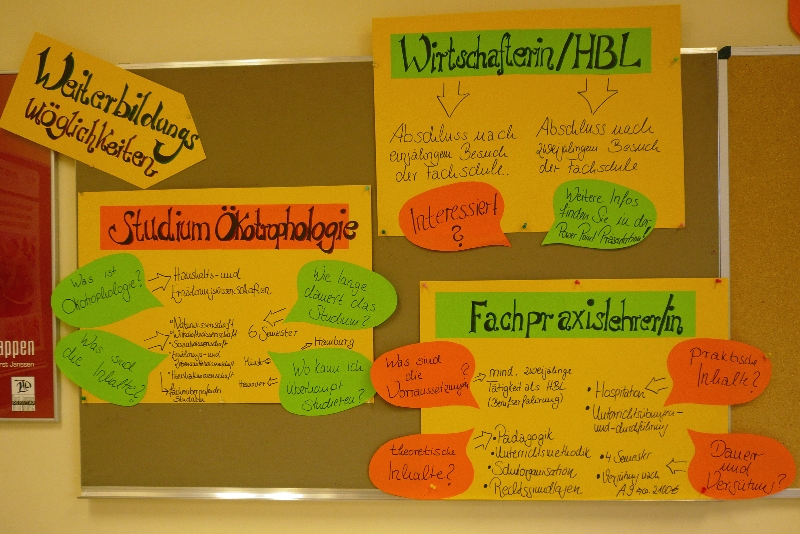 Weiterbildungs
möglichkeiten
Wirtschafterin/HBL
Abschluss nach
einjährigem Besuch
der Fachschule.
Abschluss nach
zweijährigem Besuch
der Fachschule
Interessiert
?
Weitere Infos
finden Sie in der
Power Point Präsentation!
Studium Ökotrophologie
Was ist
Ökotrophologie?
Haushalts- und
Ernährungswissenschaften
Wie lange
dauert das
Studium?
6 Semester
Was sind
die Inhalte?
Naturwissenschaft
Wirtschaftswissenschaft
Sozialwissenschaft
Ernährungs- und
Wo kann ich
überhaupt
Studieren?
Hamburg
Hannover
Fachpraxislehrer/in
Was sind
die
Voraussetzungen?
mind. zweijährige
Tätigkeit als HBL
(Berufserfahrung)
praktische
Inhalte?
• Hospitation
• Unterrichtsübungen-
und-durchführung
theoretische
Inhalte?
• Pädagogik
• Unterrichtsmethodik
• Schulorganisation
• Rechtsgrundlagen
Dauer
und
Vergütung?
• 4 Semester
• Vergütung nach
A9 ca. 2100€
appen
rst Janssen